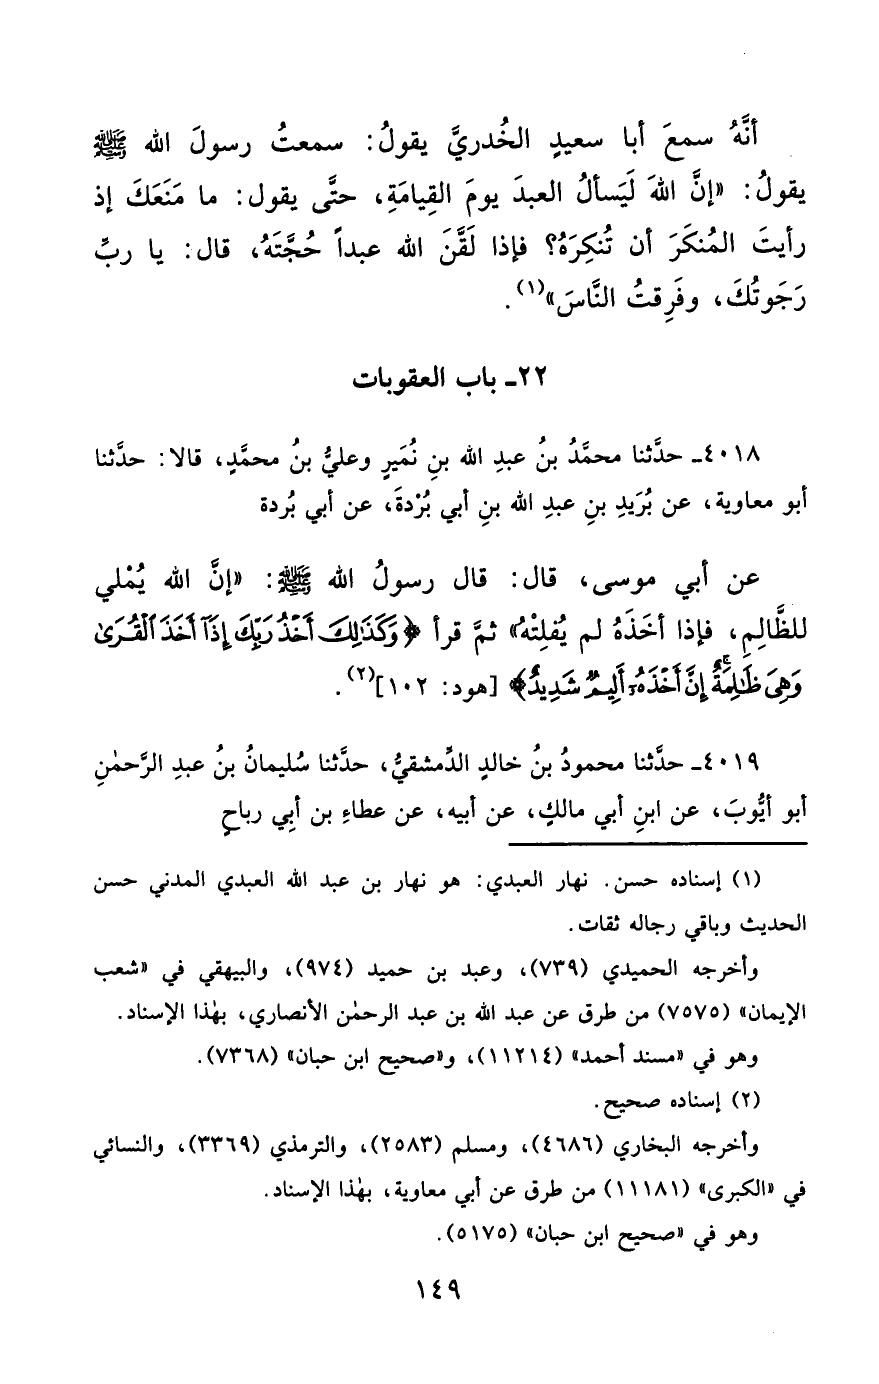 أنَّهُ سمعَ أبا سعيدٍ الخُدريَّ يقولُ: سمعتُ رسولَ الله ﷺ
يقولُ: «إنَّ اللهَ لَيَسألُ العبدَ يومَ القِيامَةِ، حتَّى يقول: ما مَنَعَكَ إذ
رأيتَ المُنكَرَ أن تُنكِرَهُ؟ فإذا لَقَّنَ الله عبداً حُجَّتَهُ، قال: يا ربِّ
رَجَوتُكَ، وفَرِقتُ النَّاسَ»(١).
٢٢ـ باب العقوبات
٤٠١٨ـ حدَّثنا محمَّدُ بنُ عبدِ الله بنِ نُمَيرٍ وعليُّ بنُ محمَّدٍ، قالا: حدَّثنا
أبو معاوية، عن بُرَيدِ بنِ عبدِ الله بنِ أبي بُرْدةَ، عن أبي بُردة
عن أبي موسى، قال: قال رسولُ الله ﷺ: «إنَّ الله يُمْلي
للظَّالِمِ، فإذا أخَذَهُ لم يُفلِتْهُ» ثمَّ قرأ ﴿وَكَذَٰلِكَ أَخْذُ رَبِّكَ إِذَآ أَخَذَ ٱلْقُرَىٰ
وَهِىَ ظَٰلِمَةٌ ۚ إِنَّ أَخْذَهُۥٓ أَلِيمٌ شَدِيدٌ﴾ [هود: ١٠٢](٢).
٤٠١٩ـ حدَّثنا محمودُ بنُ خالدٍ الدِّمشقيُّ، حدَّثنا سُليمانُ بنُ عبدِ الرَّحمٰنِ
أبو أيُّوبَ، عن ابنِ أبي مالكٍ، عن أبيه، عن عطاءِ بن أبِي رباحٍ
(١) إسناده حسن. نهار العبدي: هو نهار بن عبد الله العبدي المدني حسن
الحديث وباقي رجاله ثقات.
وأخرجه الحميدي (٧٣٩)، وعبد بن حميد (٩٧٤)، والبيهقي في «شعب
الإيمان» (٧٥٧٥) من طرق عن عبد الله بن عبد الرحمٰن الأنصاري، بهٰذا الإسناد.
وهو في «مسند أحمد» (١١٢١٤)، و«صحيح ابن حبان» (٧٣٦٨).
(٢) إسناده صحيح.
وأخرجه البخاري (٤٦٨٦)، ومسلم (٢٥٨٣)، والترمذي (٣٣٦٩)، والنسائي
في «الكبرى» (١١١٨١) من طرق عن أبي معاوية، بهٰذا الإسناد.
وهو في «صحيح ابن حبان» (٥١٧٥).
١٤٩